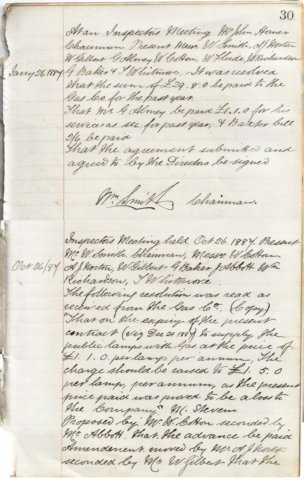 30
At an Inspectors Meeting Mr John Homer
Chairman Present Messr W Smith, J Horton
W Gilbert G Abney W Cotton, W Slade, W Richardson
Jany 26 1884 G Baker & T Whitmore. It was resolved
that the sum of £29. 8. 0 be paid to the
Gas Co for the past year
That Mr G Abney be paid £1. 1. 0 for his
services as sec for past year, & Baker bill
9/6 be paid
That the agreement submitted and
agreed to by the Directors be signed
Wm Smith Chairman.
Inspectors Meeting held Oct 26. 1884. Present
Oct 26/84 Mr W Smith Chairman, Messr W Cotton
A J Horton, W Gilbert G Baker J Abbott Wm
Richardson, T Whitmore.
The following resolution was read as
received from the Gas Co. (Copy)
"That on the expiry of the present
contract to supply the
public lamps with Gas at the price of
£1. 1. 0 per lamp per annum, The
charge should be raised to £1. 5. 0
per lamp, per annum, as the present
price paid was proved to be a loss to
the Company" M. Stevens
Proposed by Mr W Cotton seconded by
Mr Abbott. that the advance be paid
Amendement moved by Mr A J Horton
seconded by Mr W Gilbert that the